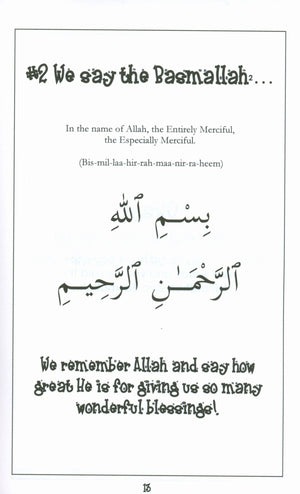 #2 We say the Basmallah²...
In the name of Allah, the Entirely Merciful,
the Especially Merciful.
(Bis-mil-laa-hir-rah-maa-nir-ra-heem)
بِسْمِ ٱللَّهِ
ٱلرَّحْمَـٰنِ ٱلرَّحِيمِ
We remember Allah and say how
great He is for giving us so many
wonderful blessings!
13